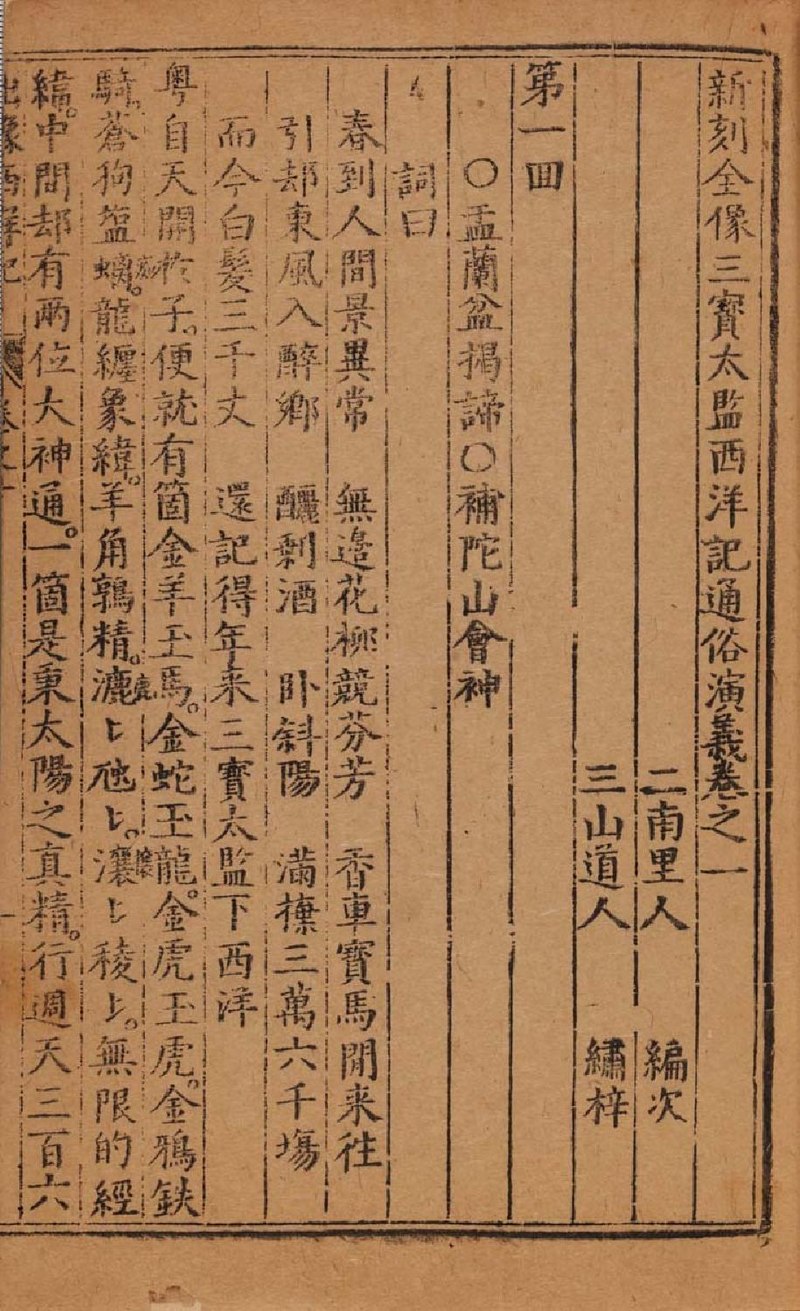 新刻全像三寶太監西洋記通俗演義卷之一
二南里人 編次
三山道人 繡梓
第一回
○盂蘭盆揭諦○補陀山會神
詞曰
春到人間景異常 無邉花柳競芬芳 香車寳馬閒来徃
引却東風入醉鄉 釃剰酒 卧斜陽 滿𢶏三萬六千塲
而今白髮三千丈 還記得年来三寳太監下西洋
粤自天開於子。便就有箇金羊玉馬。金蛇玉龍。金虎玉虎。金鴉鉄
騎。蒼狗盬螭。龍纏象緯。羊角鶉精。漉〻虺〻。瀼〻稜〻。無限的經
緯。中間却有兩位大神通。一箇是秉太陽之真精。行週天三百六